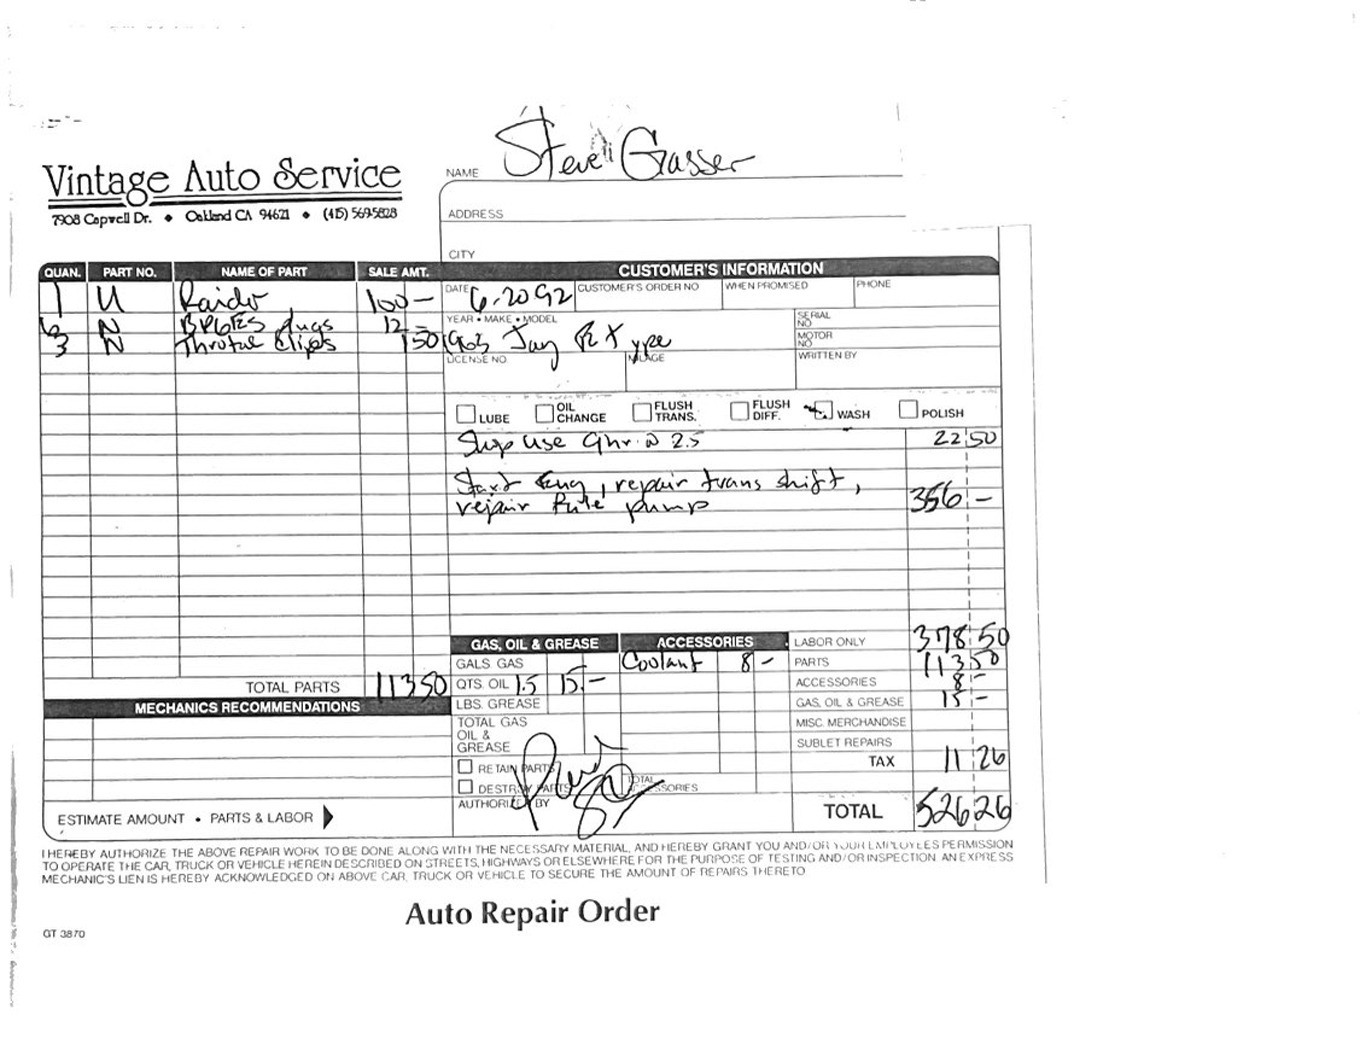 Steve Gasser
NAME
Vintage Auto Service
7908 Capwell Dr. ♦ Oakland CA 94621 ♦ (415) 569-5828
ADDRESS
CITY
QUAN. PART NO. NAME OF PART SALE AMT. CUSTOMER'S INFORMATION
1 U Raidio 100 —
DATE 6-20 92 CUSTOMER'S ORDER NO WHEN PROMISED PHONE
6 N BP6ES plugs 12
3 N Throttle Clips 1 50
YEAR • MAKE • MODEL Jag Type
SERIAL NO
MOTOR NO
LICENSE NO. MILAGE WRITTEN BY
LUBE OIL CHANGE FLUSH TRANS. FLUSH DIFF. WASH POLISH
Shop use 9hr @ 2.5 22 50
Start Eng, repair trans shift,
repair pump 356 —
GAS, OIL & GREASE ACCESSORIES LABOR ONLY 378 50
GALS. GAS Coolant 8 — PARTS 113 50
TOTAL PARTS 113 50 QTS. OIL 1.5 15 — ACCESSORIES 8 —
MECHANICS RECOMMENDATIONS LBS. GREASE GAS, OIL & GREASE 15 —
TOTAL GAS OIL & GREASE MISC. MERCHANDISE
SUBLET REPAIRS
RETAIN PARTS TAX 11 26
DESTROY PARTS TOTAL ACCESSORIES
AUTHORIZED BY
ESTIMATE AMOUNT • PARTS & LABOR TOTAL 526 26
I HEREBY AUTHORIZE THE ABOVE REPAIR WORK TO BE DONE ALONG WITH THE NECESSARY MATERIAL, AND HEREBY GRANT YOU AND/OR YOUR EMPLOYEES PERMISSION
TO OPERATE THE CAR, TRUCK OR VEHICLE HEREIN DESCRIBED ON STREETS, HIGHWAYS OR ELSEWHERE FOR THE PURPOSE OF TESTING AND/OR INSPECTION AN EXPRESS
MECHANIC'S LIEN IS HEREBY ACKNOWLEDGED ON ABOVE CAR, TRUCK OR VEHICLE TO SECURE THE AMOUNT OF REPAIRS THERETO
Auto Repair Order
GT 3870